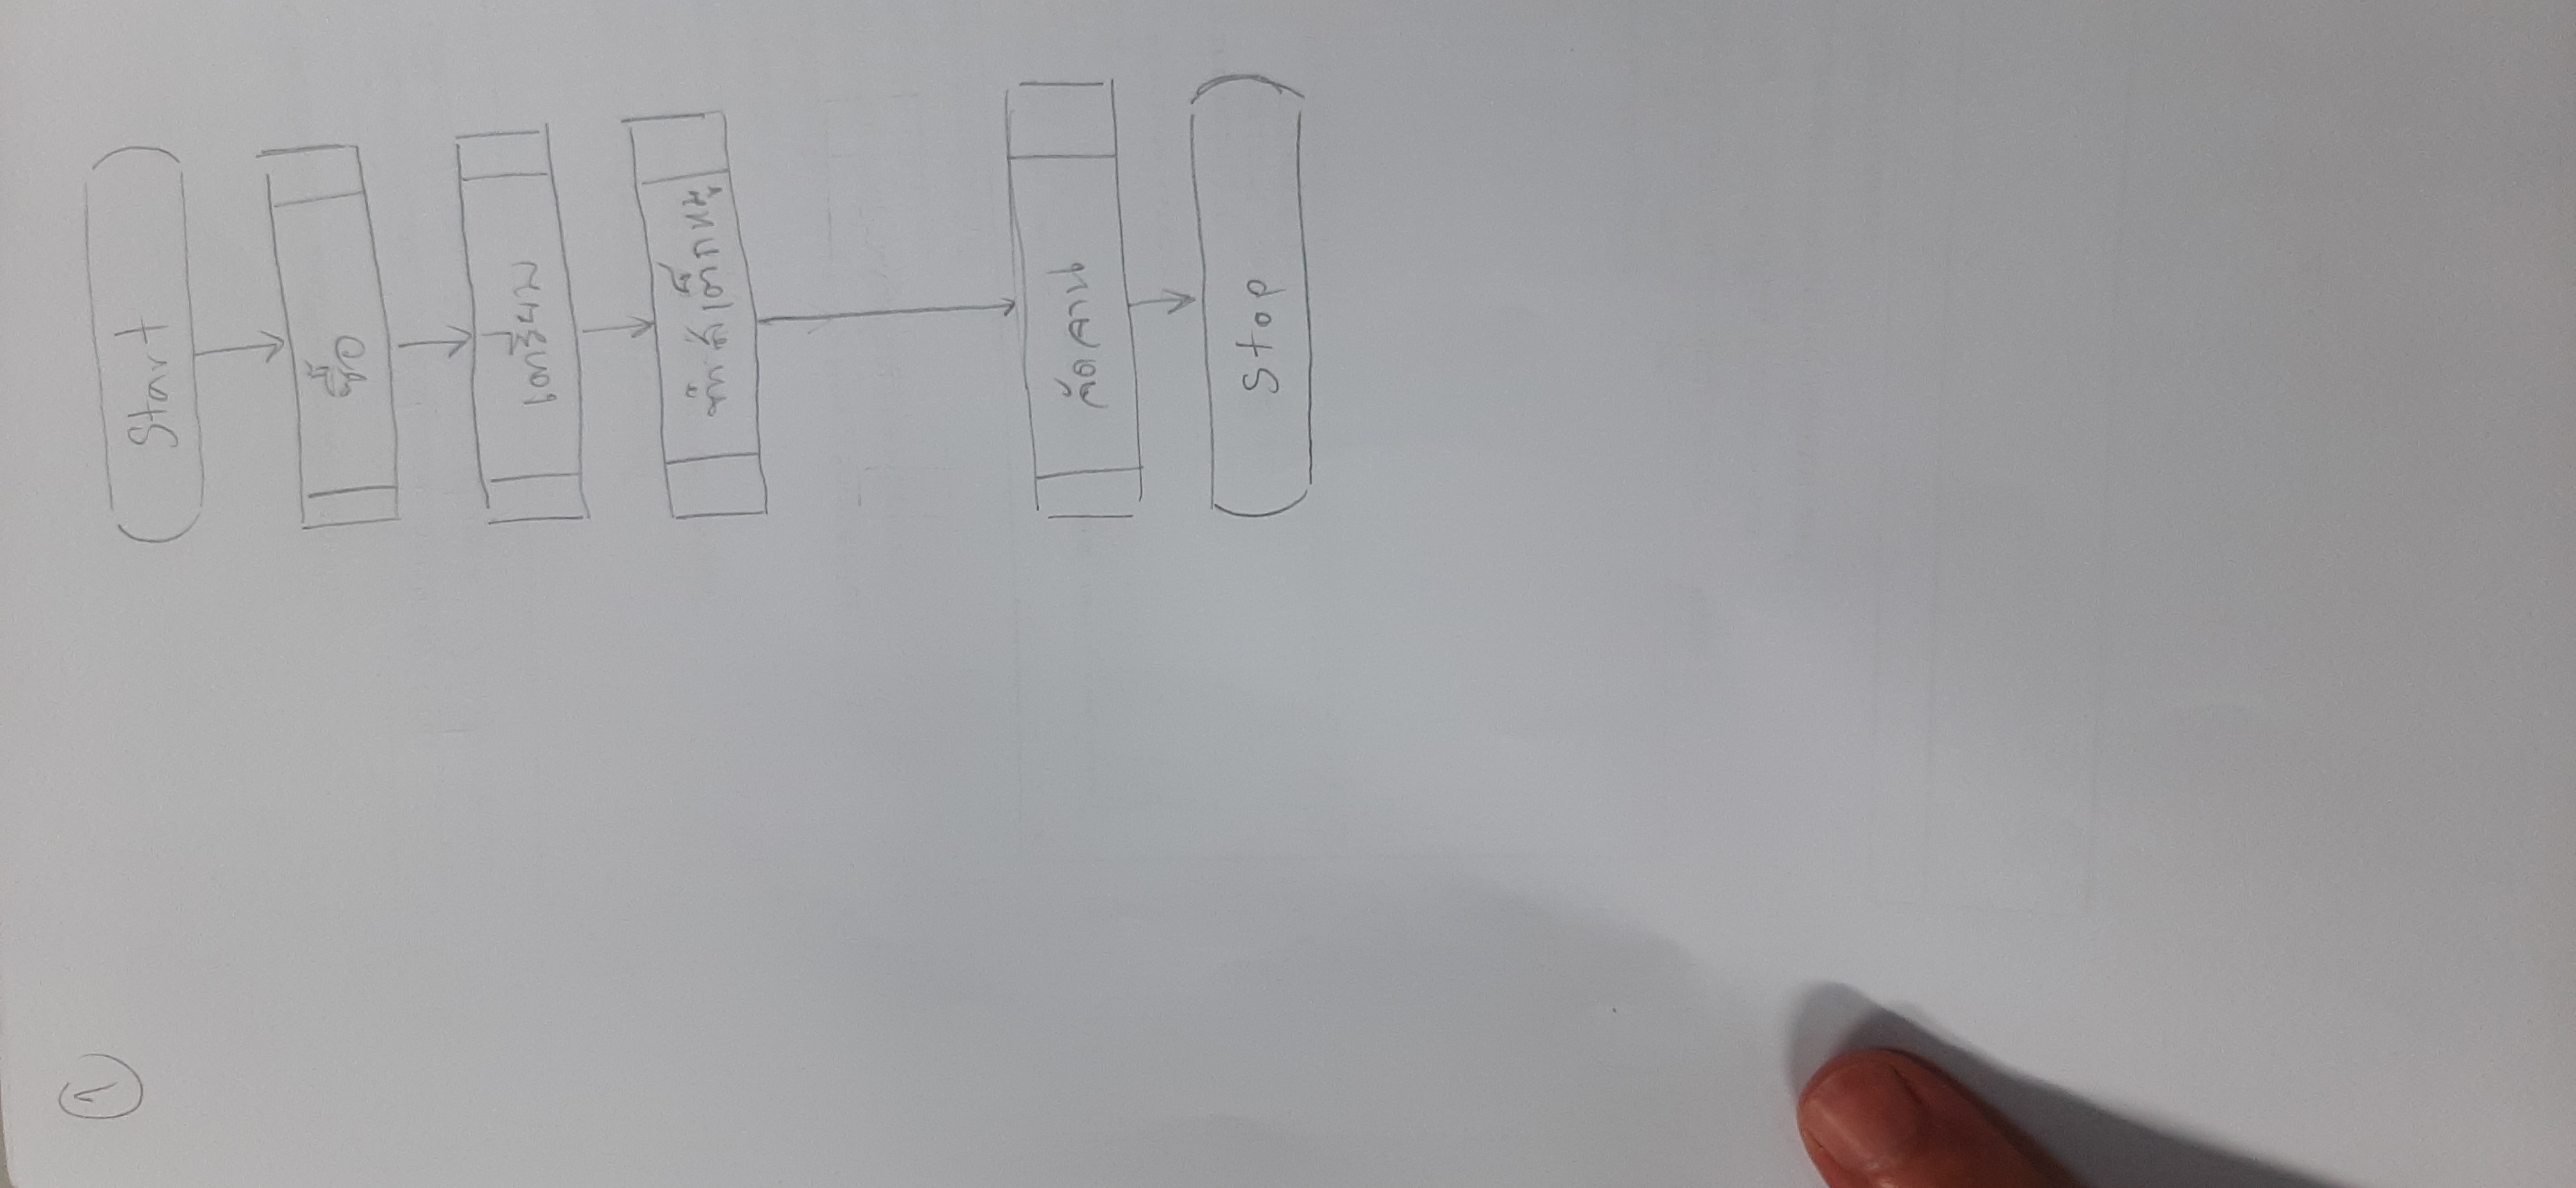 1
Start
ซื้อ
เตรียม
ทำสเต็กหมู
จัดจาน
Stop